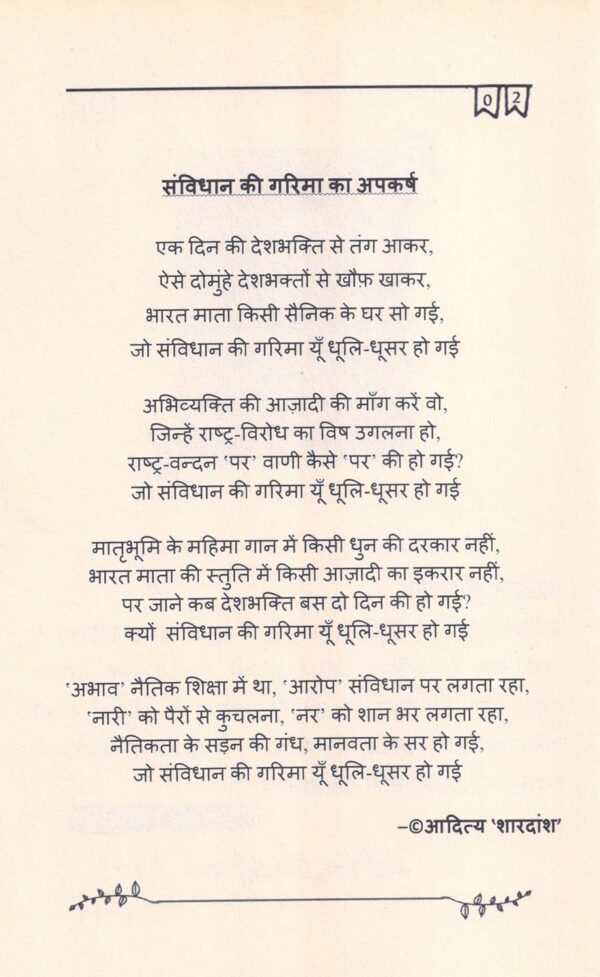 02
संविधान की गरिमा का अपकर्ष
एक दिन की देशभक्ति से तंग आकर,
ऐसे दोमुंहे देशभक्तों से खौफ़ खाकर,
भारत माता किसी सैनिक के घर सो गई,
जो संविधान की गरिमा यूँ धूलि-धूसर हो गई
अभिव्यक्ति की आज़ादी की माँग करें वो,
जिन्हें राष्ट्र-विरोध का विष उगलना हो,
राष्ट्र-वन्दन ‘पर’ वाणी कैसे ‘पर’ की हो गई?
जो संविधान की गरिमा यूँ धूलि-धूसर हो गई
मातृभूमि के महिमा गान में किसी धुन की दरकार नहीं,
भारत माता की स्तुति में किसी आज़ादी का इकरार नहीं,
पर जाने कब देशभक्ति बस दो दिन की हो गई?
क्यों संविधान की गरिमा यूँ धूलि-धूसर हो गई
‘अभाव’ नैतिक शिक्षा में था, ‘आरोप’ संविधान पर लगता रहा,
‘नारी’ को पैरों से कुचलना, ‘नर’ को शान भर लगता रहा,
नैतिकता के सड़न की गंध, मानवता के सर हो गई,
जो संविधान की गरिमा यूँ धूलि-धूसर हो गई
–©आदित्य ‘शारदांश’